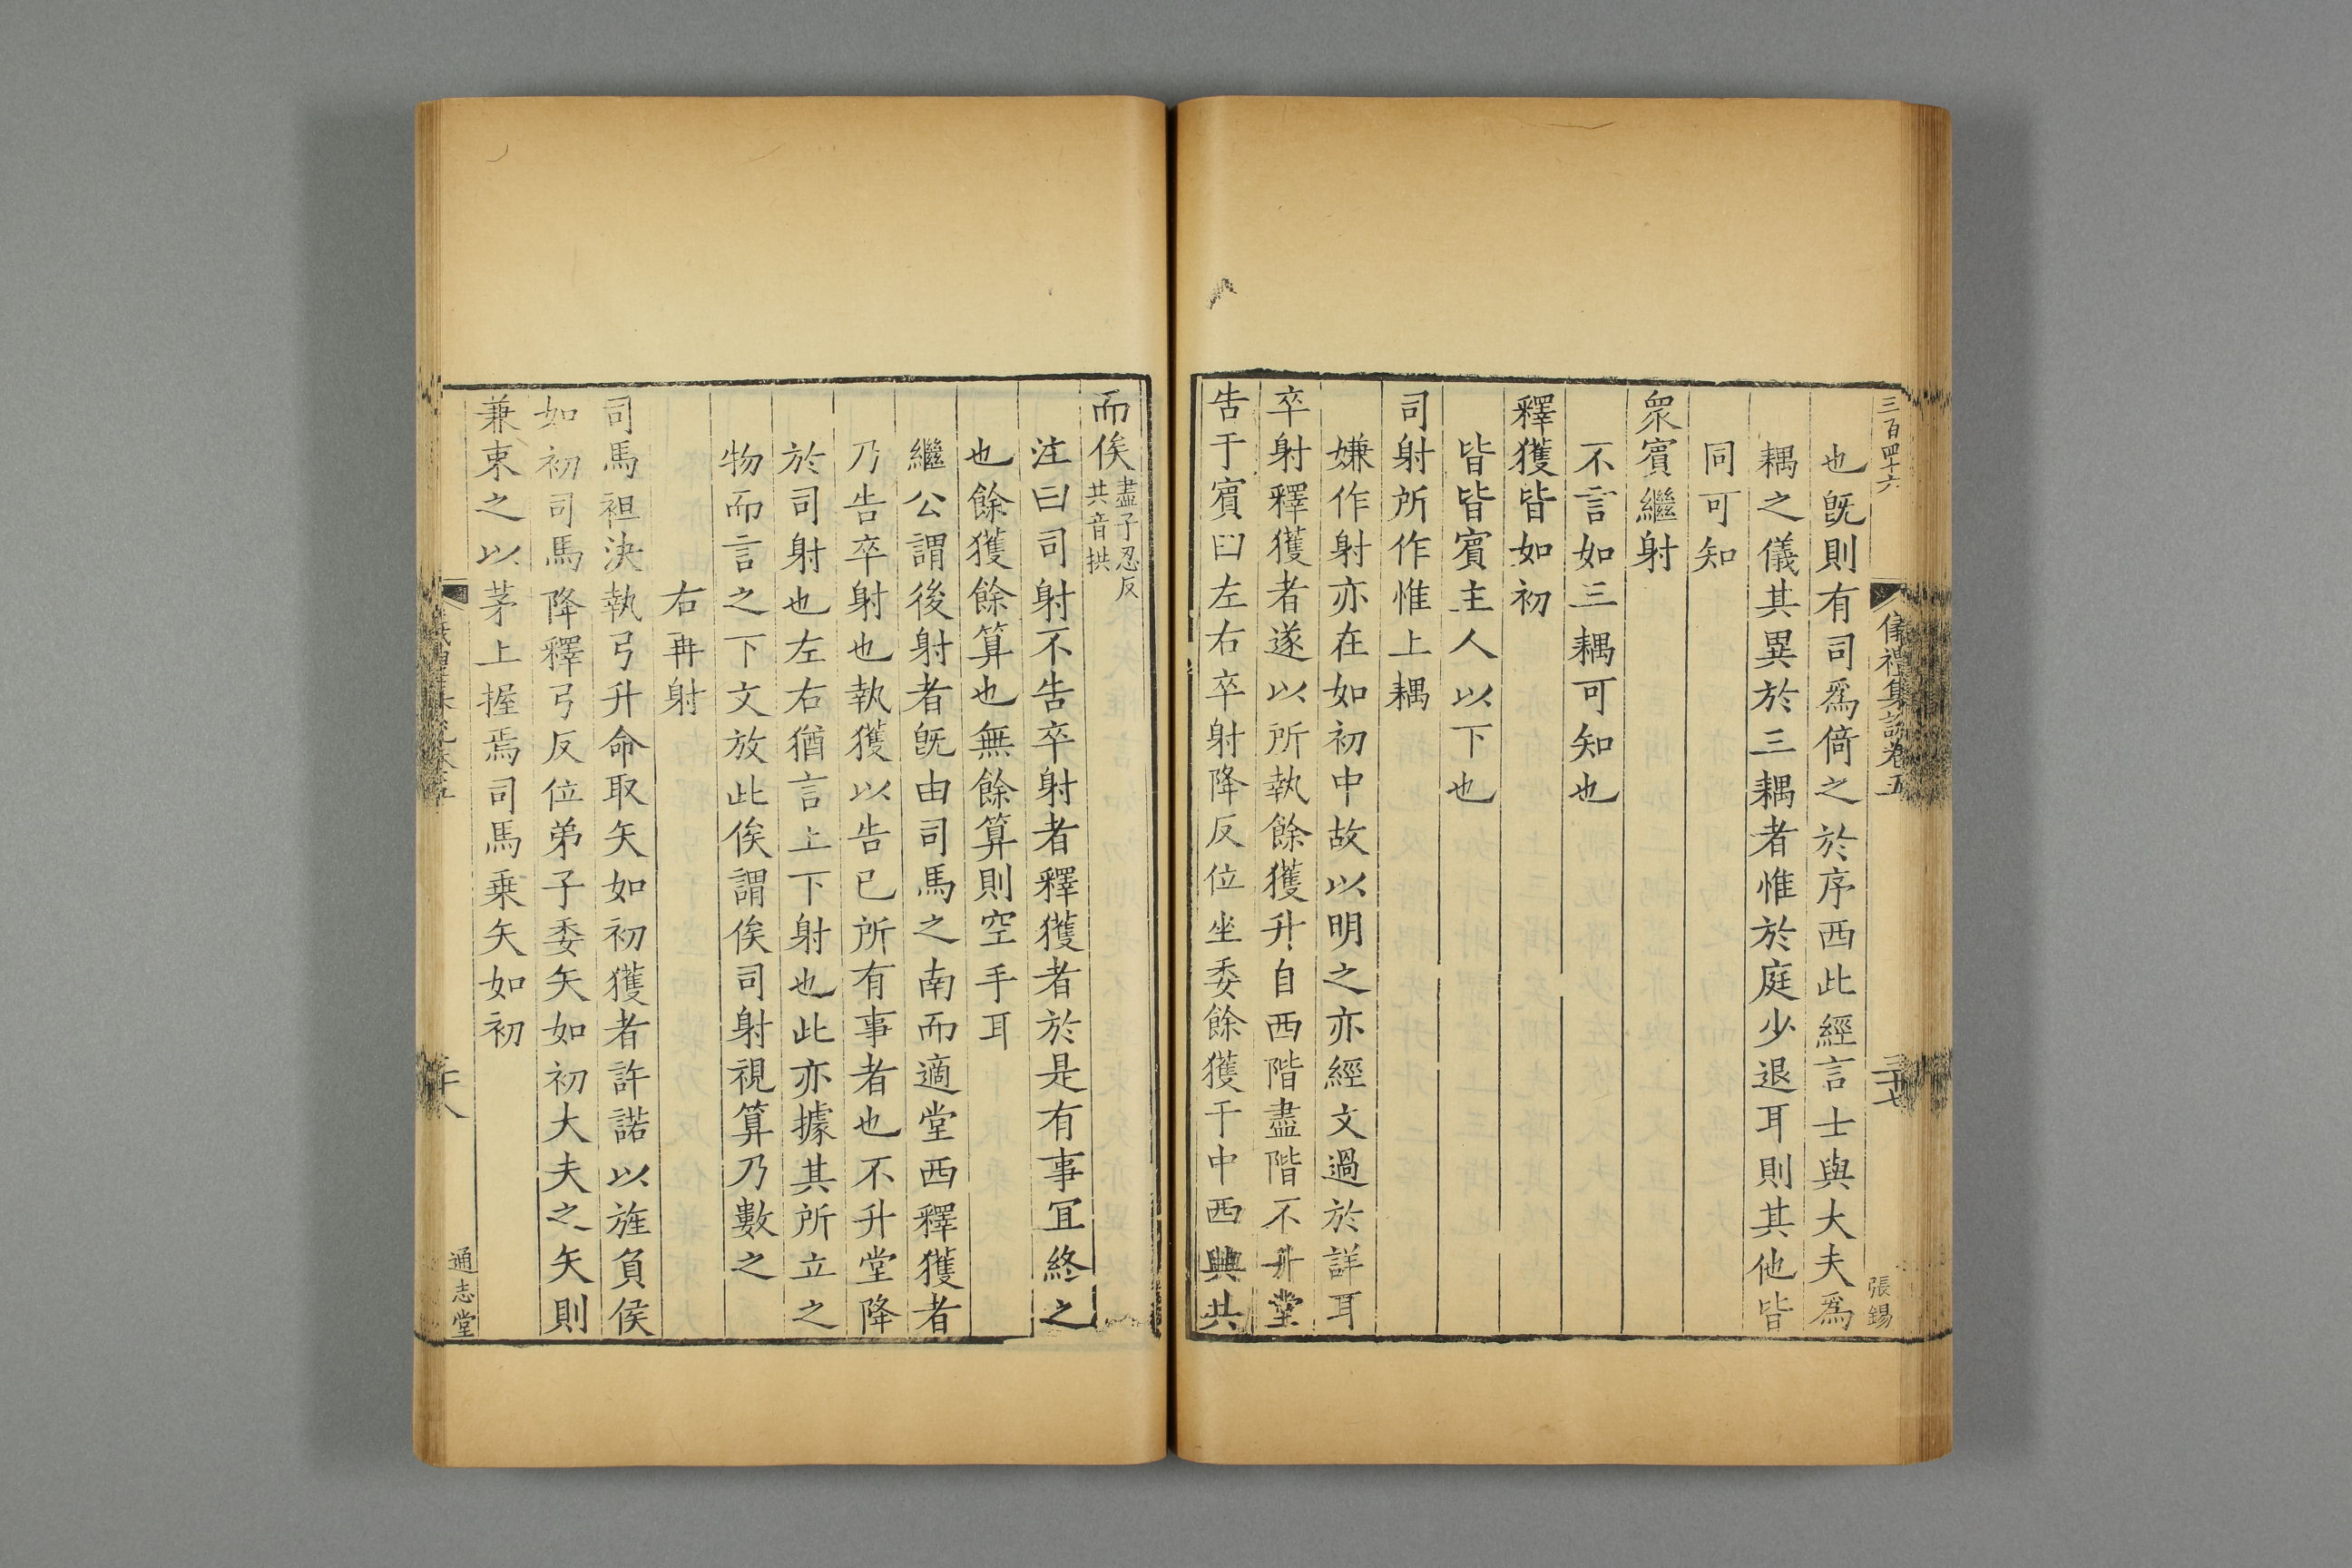 三百四十六
儀禮集說卷五
三十七
張錫
也旣則有司爲倚之於序西此經言士與大夫爲
耦之儀其異於三耦者惟於庭少退耳則其他皆
同可知
衆賓繼射
不言如三耦可知也
釋獲皆如初
皆皆賓主人以下也
司射所作惟上耦
嫌作射亦在如初中故以明之亦經文過於詳耳
卒射釋獲者遂以所執餘獲升自西階盡階不升堂
告于賓曰左右卒射降反位坐委餘獲于中西興共
而俟盡子忍反
共音拱
注曰司射不告卒射者釋獲者於是有事宜終之
也餘獲餘算也無餘算則空手耳
繼公謂後射者旣由司馬之南而適堂西釋獲者
乃告卒射也執獲以告已所有事者也不升堂降
於司射也左右猶言上下射也此亦據其所立之
物而言之下文放此俟謂俟司射視算乃數之
右再射
司馬袒決執弓升命取矢如初獲者許諾以旌負侯
如初司馬降釋弓反位弟子委矢如初大夫之矢則
兼束之以茅上握焉司馬乘矢如初
通志堂